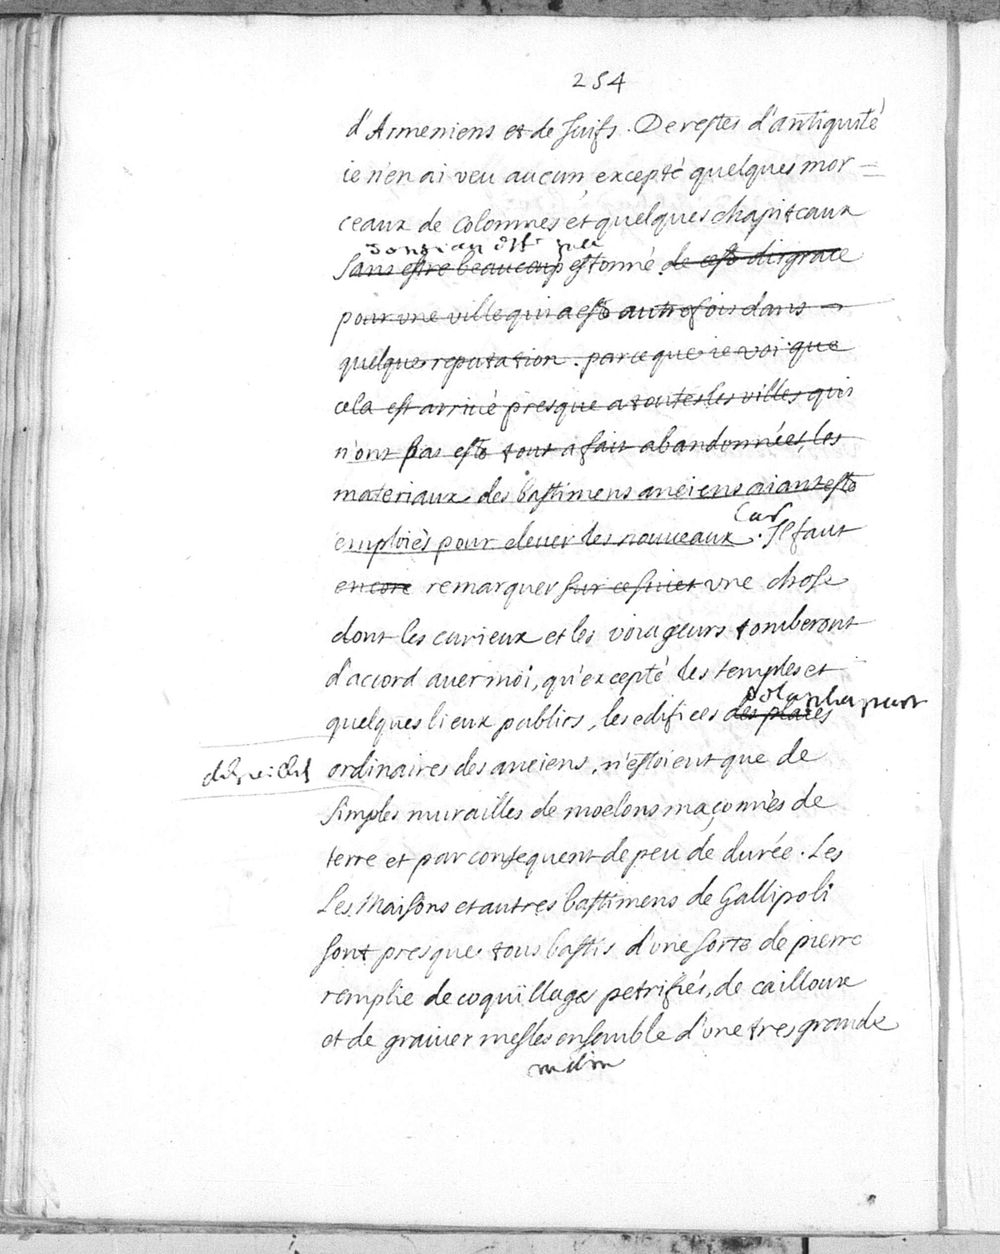 254
d'Armeniens et de Juifs. De restes d'antiquité
ie n'en ai veu aucun, excepté quelques mor=
ceaux de colomnes et quelques chapiteaux
Sans estre beaucoup estonné de ceste disgrace
pour une ville qui a esté autrefois dans
quelque reputation. parce que ie voi que
cela est arrivé presque a toutes les villes qui
n'ont pas esté tout a fait abandonnées, les
materiaux des bastimens anciens aiant esté
emploiés pour elever les nouveaux. Car Il faut
encore remarquer sur ce suiet une chose
dont les curieux et les voiageurs tomberont
d'accord avec moi, qu'excepté les temples et
de la plus part
quelques lieux publics, les edifices des places
ordinaires des anciens, n'estoient que de
simples murailles de moelons maçonnés de
terre et par consequent de peu de durée. Les
Les Maisons et autres bastimens de Gallipoli
sont presque tous bastis d'une sorte de pierre
remplie de coquillages petrifiés, de cailloux
et de gravier meslés ensemble d'une tres grande